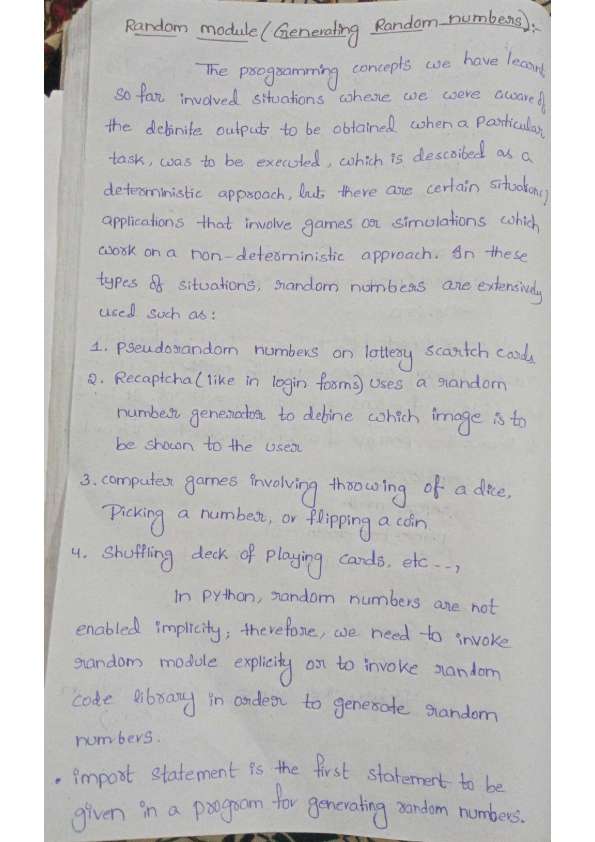 Random module (Generating Random numbers):-
The programming concepts we have learnt
so far involved situations where we were aware of
the definite outputs to be obtained when a particular
task, was to be executed, which is described as a
deterministic approach, but there are certain situations,
applications that involve games or simulations which
work on a non-deterministic approach. In these
types of situations, random numbers are extensively
used such as:
1. Pseudorandom numbers on lottery scartch cards
2. Recaptcha (like in login forms) uses a random
number generator to define which image is to
be shown to the user
3. computer games involving throwing of a dice,
Picking a number, or flipping a coin
4. Shuffling deck of playing cards, etc --,
In Python, random numbers are not
enabled implicity; therefore, we need to invoke
random module explicity or to invoke random
code library in order to generate random
numbers.
• import statement is the first statement to be
given in a program for generating random numbers.